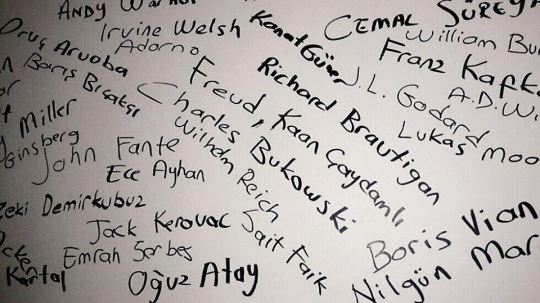 ANDY
Irvine Welsh
Adorno
Oruç Aruoba
Barış Bıçakçı
Miller
Ginsberg
John Fante
Ece Ayhan
Zeki Demirkubuz
Jack Kerovac
Emrah Serbes
Kartal
Oğuz Atay
CEMAL SÜREYA
William Bu
Franz Kafka
A.D. Wi
J.L. Godard
Lukas Moo
Kanat Güner
Richard Brautigan
Freud, Kaan Çaydamlı
Charles Bukowski
Wilhelm Reich
Sait Faik
Boris Vian
Nilgün Mar